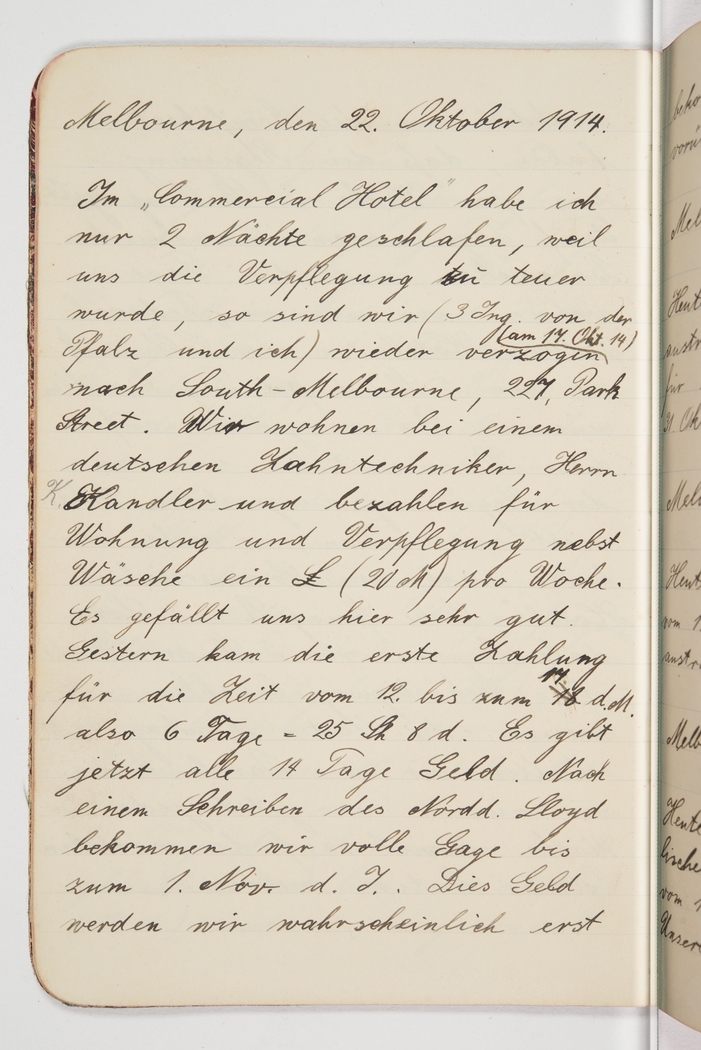 Melbourne, den 22. Oktober 1914.
Im „Commercial Hotel" habe ich
nur 2 Nächte geschlafen, weil
uns die Verpflegung zu teuer
wurde, so sind wir (3 Ing. von der
(am 17. Okt. 14)
Pfalz und ich) wieder verzogen
nach South-Melbourne, 227, Park
Street. Wir wohnen bei einem
deutschen Zahntechniker, Herrn
K. Kandler und bezahlen für
Wohnung und Verpflegung nebst
Wäsche ein £ (20 M) pro Woche.
Es gefällt uns hier sehr gut.
Gestern kam die erste Zahlung
17.
für die Zeit vom 12. bis zum d. M.
also 6 Tage = 25 Sh 8 d. Es gibt
jetzt alle 14 Tage Geld. Nach
einem Schreiben des Nordd. Lloyd
bekommen wir volle Gage bis
zum 1. Nov. d. J.. Dies Geld
werden wir wahrscheinlich erst